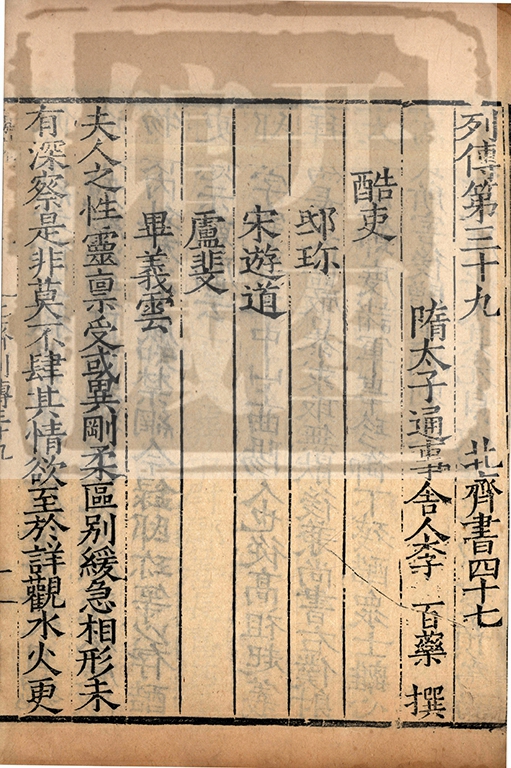 列傳第三十九　北齊書四十七
隋太子通事舍人李　百藥　撰
酷吏
邸珍
宋遊道
盧斐
畢義雲
夫人之性靈禀受或異剛柔區別緩急相形未
有深察是非莫不肆其情欲至於詳觀水火更